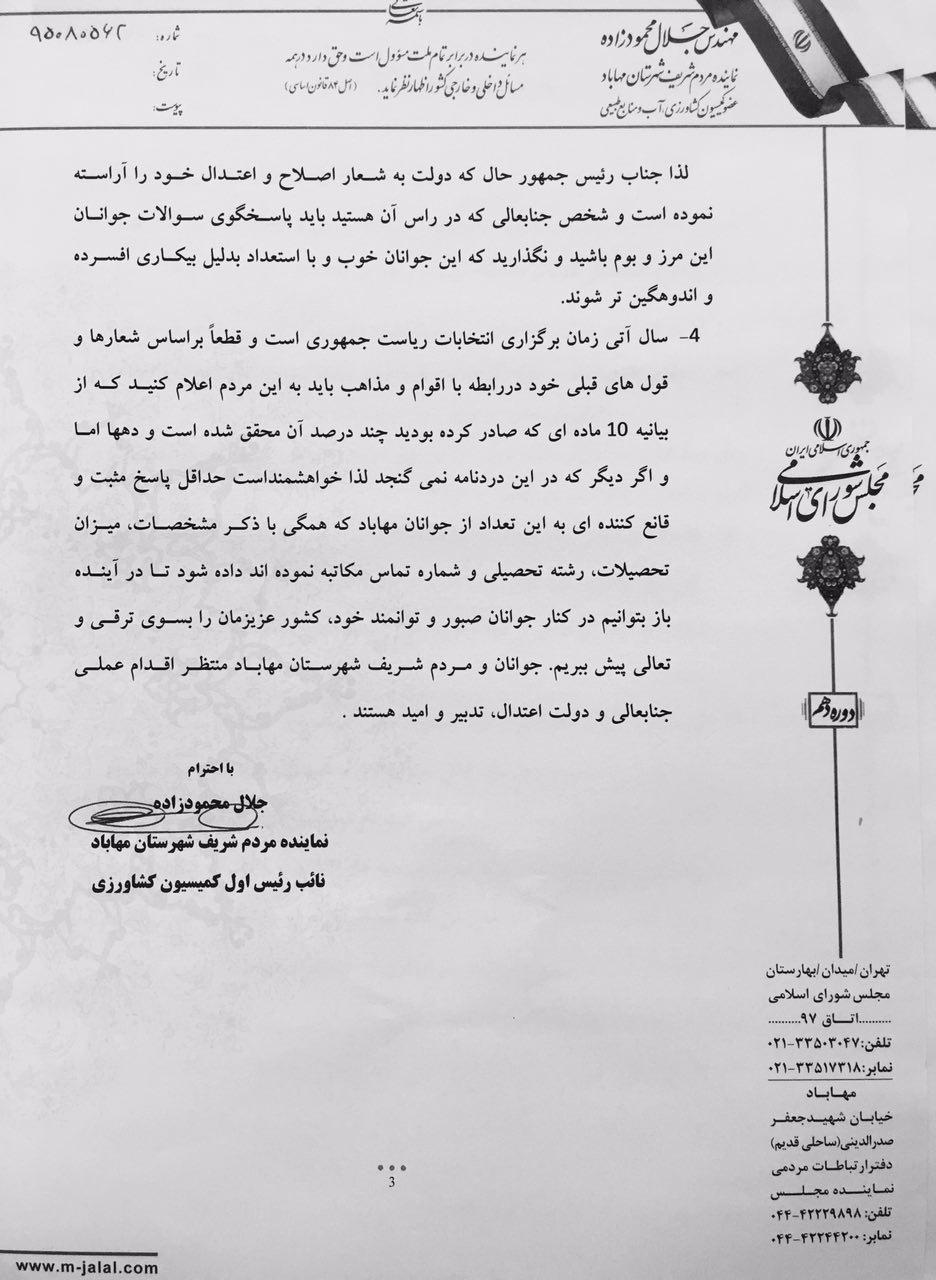 باسمه تعالی
مهندس جلال محمودزاده
نماینده مردم شریف شهرستان مهاباد
عضو کمیسیون کشاورزی، آب و منابع طبیعی
هر نماینده در برابر تمام ملت مسؤول است و حق دارد در همه
مسائل داخلی و خارجی کشور اظهار نظر نماید. (اصل ۸۴ قانون اساسی)
شماره: ۹۵۰۸۰۵۶۲
تاریخ:
پیوست:
لذا جناب رئیس جمهور حال که دولت به شعار اصلاح و اعتدال خود را آراسته
نموده است و شخص جنابعالی که در راس آن هستید باید پاسخگوی سوالات جوانان
این مرز و بوم باشید و نگذارید که این جوانان خوب و با استعداد بدلیل بیکاری افسرده
و اندوهگین تر شوند.
4- سال آتی زمان برگزاری انتخابات ریاست جمهوری است و قطعاً براساس شعارها و
قول های قبلی خود دررابطه با اقوام و مذاهب باید به این مردم اعلام کنید که از
بیانیه 10 ماده ای که صادر کرده بودید چند درصد آن محقق شده است و دهها اما
و اگر دیگر که در این دردنامه نمی گنجد لذا خواهشمنداست حداقل پاسخ مثبت و
قانع کننده ای به این تعداد از جوانان مهاباد که همگی با ذکر مشخصات، میزان
تحصیلات، رشته تحصیلی و شماره تماس مکاتبه نموده اند داده شود تا در آینده
باز بتوانیم در کنار جوانان صبور و توانمند خود، کشور عزیزمان را بسوی ترقی و
تعالی پیش ببریم. جوانان و مردم شریف شهرستان مهاباد منتظر اقدام عملی
جنابعالی و دولت اعتدال، تدبیر و امید هستند .
با احترام
جلال محمودزاده
نماینده مردم شریف شهرستان مهاباد
نائب رئیس اول کمیسیون کشاورزی
جمهوری اسلامی ایران
مجلس شورای اسلامی
دوره دهم
تهران/میدان/بهارستان
مجلس شورای اسلامی
..........اتاق ۹۷.........
تلفن:۳۳۵۰۳۰۴۷-۰۲۱
نمابر:۳۳۵۱۷۳۱۸-۰۲۱
مهاباد
خیابان شهیدجعفر
صدرالدینی(ساحلی قدیم)
دفترارتباطات مردمی
نماینده مجلس
تلفن: ۴۲۲۲۹۸۹۸-۰۴۴
نمابر: ۴۲۲۴۴۲۰۰-۰۴۴
3
www.m-jalal.com